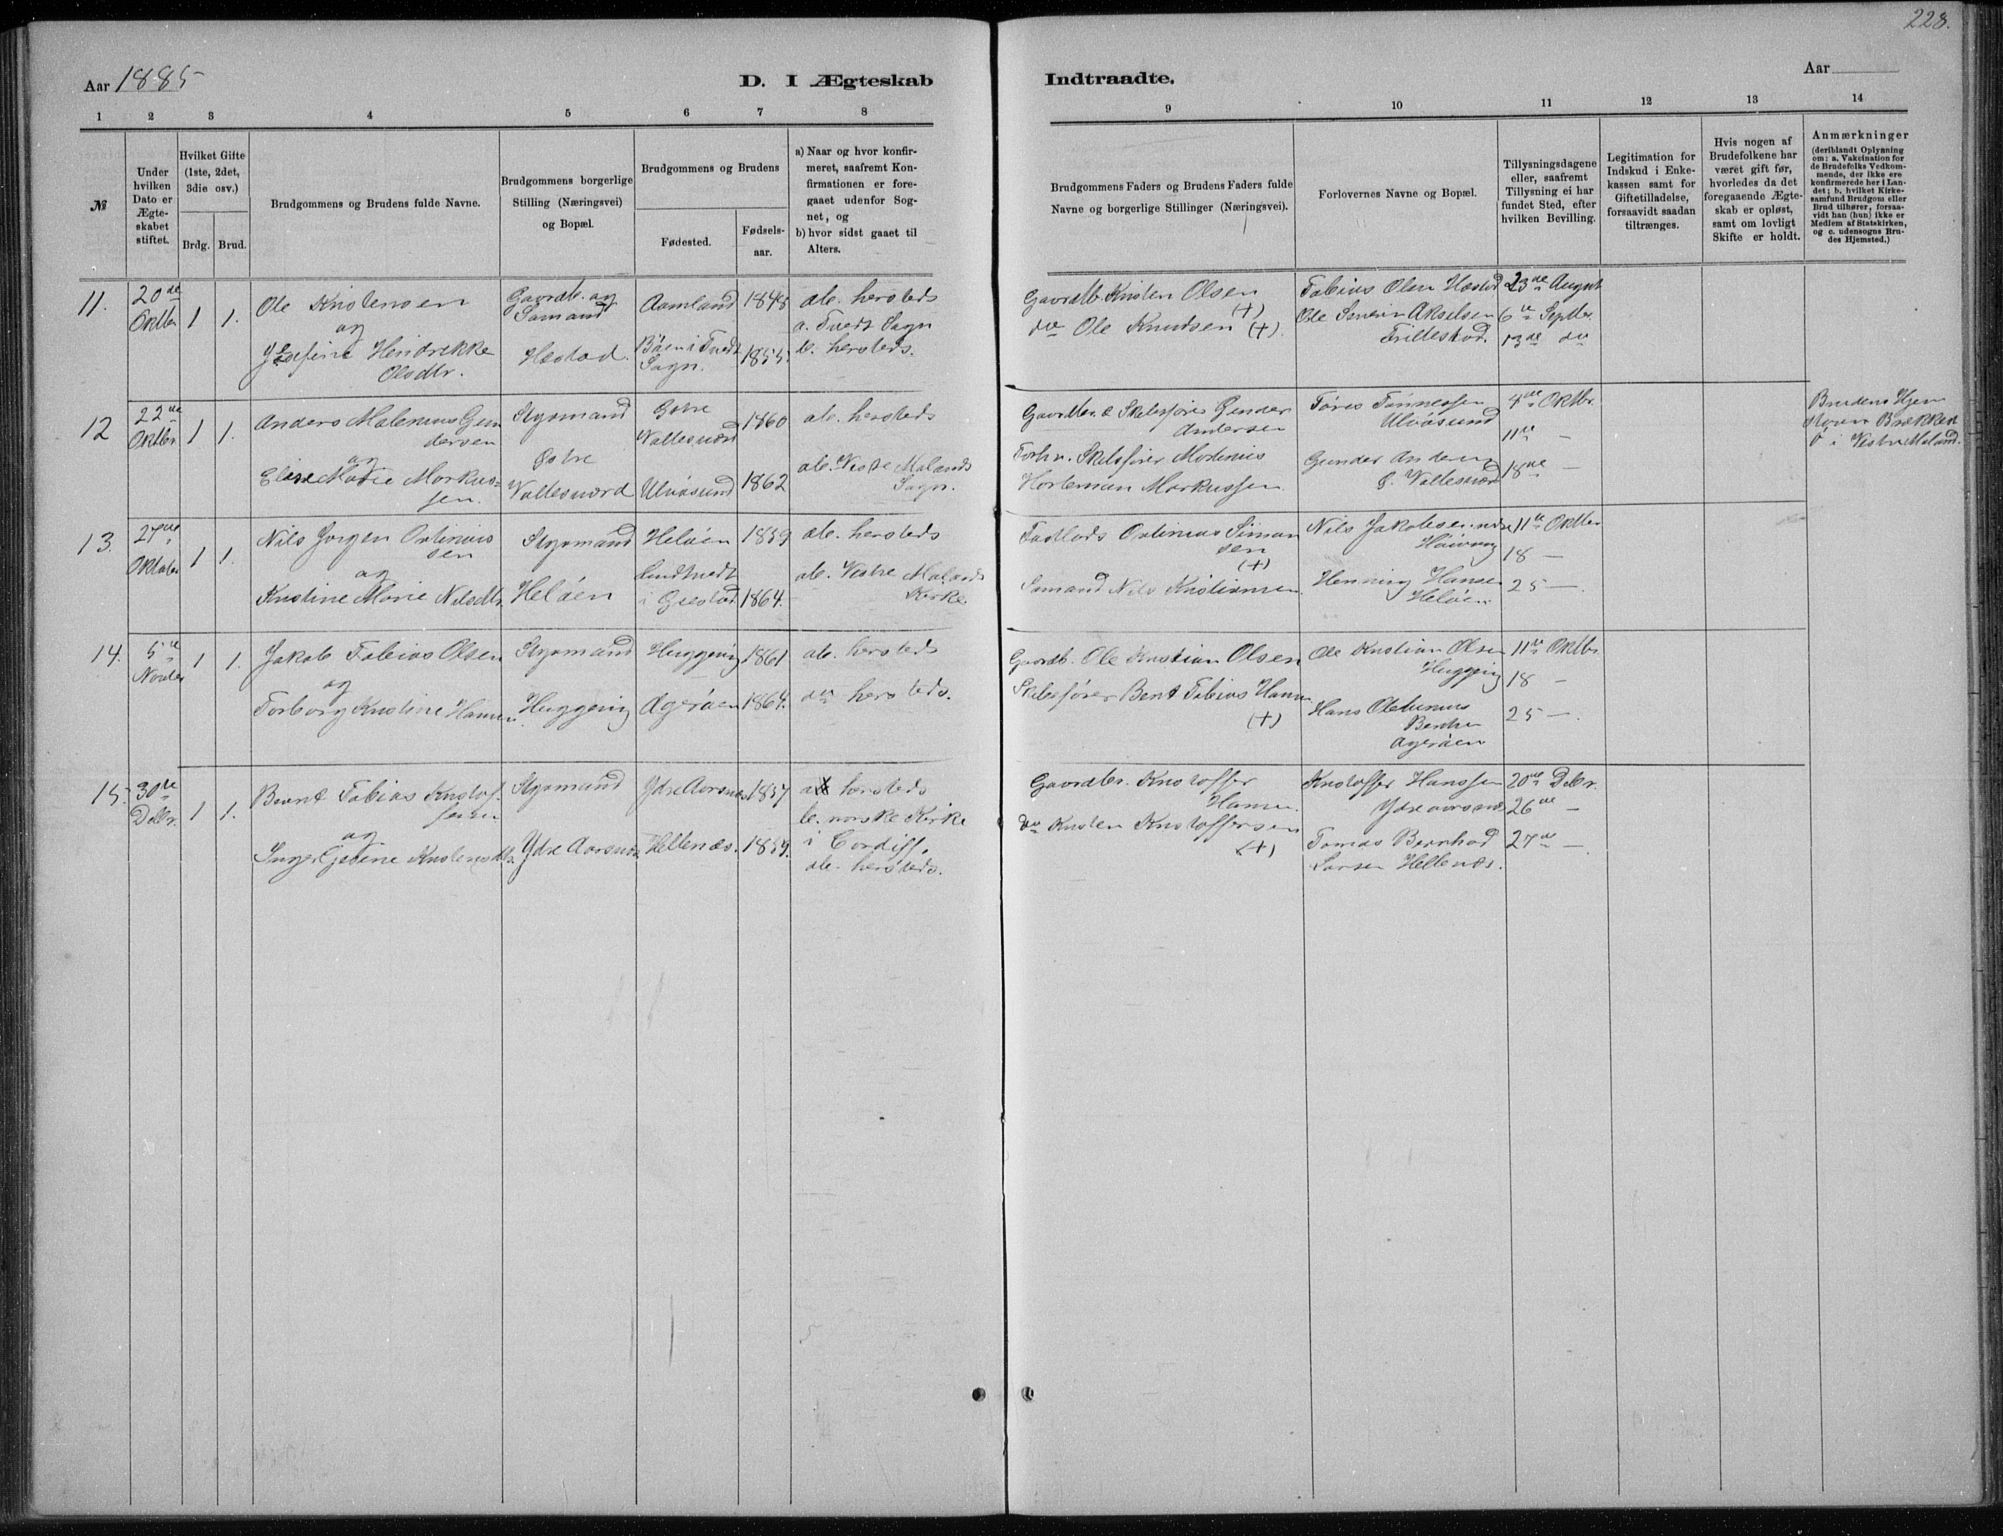 228.
Aar 1885
D. I Ægteskab
Indtraadte.
Aar
1 2 3 4 5 6 7 8
9 10 11 12 13 14
№
Under hvilken Dato er Ægteskabet stiftet.
Hvilket Gifte (1ste, 2det, 3die osv.)
Brdg. Brud.
Brudgommens og Brudens fulde Navne.
Brudgommens borgerlige Stilling (Næringsvei) og Bopæl.
Brudgommens og Brudens
Fødested.
Fødselsaar.
a) Naar og hvor konfirmeret, saafremt Konfirmationen er foregaaet udenfor Sognet, og
b) hvor sidst gaaet til Alters.
Brudgommens Faders og Brudens Faders fulde Navne og borgerlige Stillinger (Næringsvei).
Forlovernes Navne og Bopæl.
Tillysningsdagene eller, saafremt Tillysning ei har fundet Sted, efter hvilken Bevilling.
Legitimation for Indskud i Enkekassen samt for Giftetilladelse, forsaavidt saadan tiltrænges.
Hvis nogen af Brudefolkene har været gift før, hvorledes da det foregaaende Ægteskab er opløst, samt om lovligt Skifte er holdt.
Anmærkninger
(deriblandt Oplysning om: a. Vakcination for de Brudefolks Vedkommende, der ikke ere konfirmerede her i Landet; b. hvilket Kirkesamfund Brudgom eller Brud tilhører, forsaavidt han (hun) ikke er Medlem af Statskirken, og c. udensogns Brudes Hjemsted.)
11. 20de Oktbr 1 1.
Ole Kristensen
og
Josefine Hendrekke
Olsdtr.
Gaardb. og
Sømand
Hestad.
Aamland 1845
Bøen i Tvedt
Sogn. 1855.
ab. hersteds
a. Tvedt Sogn
b. hersteds.
Gaardb. Kristen Olsen
(+)
do Ole Knudsen (+).
Tobias Olsen Hestad
Ole Severin Akselsen
Trillestad.
23de August
6te Septbr.
13de do
12 22de Oktbr. 1 1.
Anders Malenius Gun
dersen
og
Elise Marie Markus-
sen.
Styrmand
Østre
Vallesværd
Østre
Vallesværd 1860
Ulvøsund 1862
ab. hersteds
ab. Vestre Molands
Sogn.
Gaardbr. & Skibsfører Gunder
Andersen
Forhv. Skibsfører Martinius
Horteman Markussen.
Tøres Tønnessen
Ulvøsund
Gunder Andersen
Ø. Vallesværd
4de Oktbr.
11te —
18de —
Brudens Hjem
i Vestre Moland.
13. 27de Oktober 1 1.
Nils Jørgen Ostinius
sen
og
Kristine Marie Nilsdtr.
Styrmand
Heløen
Heløen 1859
Lundtvedt
i Gjestad 1864.
ab. hersteds
ab. Vestre Molands
Kirke
Ostinius Simon
sen
(+)
Sømand Nils Kristiansen.
Nils Jakobsen
Høivaag
Henning Hansen
Heløen.
11te Oktbr
18 —
25 —.
14. 5te Novbr 1 1.
Jakob Tobias Olsen
og
Torborg Kristine Hansen.
Styrmand
Heggeng
Heggeng 1861
Agerøen 1864.
ab. hersteds
do hersteds.
Gaardb. Ole Kristian Olsen
Skibsfører Bent Tobias Hansen
(+)
Ole Kristian Olsen
Heggeng
Hans Olebenius
Bentsen
Agerøen
11te Oktbr.
18 —
25 —.
15. 30te Debr. 1 1.
Bernt Tobias Kristof-
fersen
og
Inger Gjeline Kristensdtr.
Styrmand
Ydre Aarsnes
Ydre Aarsnes 1857
Hellenæs. 1859.
a hersteds
b. norske Kirke
i Cardiff.
ab. hersteds.
Gaardbr. Kristoffer
Hansen.
do Kristen Kristoffersen
(+)
Kristoffer Hanssen
Ydre aarsnæs
Tomas Bernhard
Larsen Hellenæs.
20de Debr.
26de —
27de —.